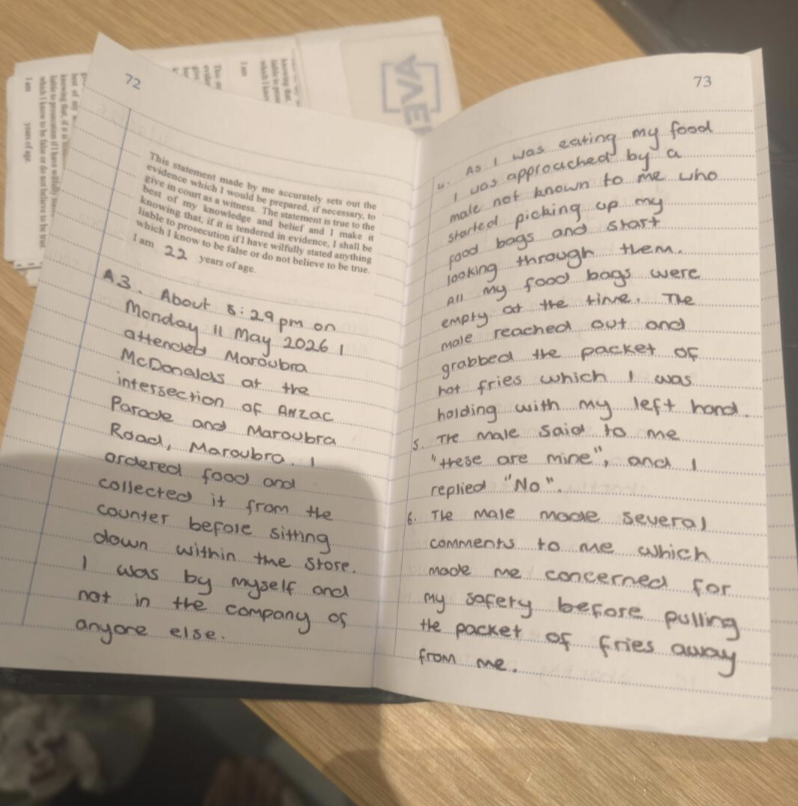 72
This statement made by me accurately sets out the
evidence which I would be prepared, if necessary, to
give in court as a witness. The statement is true to the
best of my knowledge and belief and I make it
knowing that, if it is tendered in evidence, I shall be
liable to prosecution if I have wilfully stated anything
which I know to be false or do not believe to be true.
I am 22 years of age.
A3. About 8:29pm on
Monday 11 May 2026 I
attended Maroubra
McDonalds at the
intersection of Anzac
Parade and Maroubra
Road, Maroubra. I
ordered food and
collected it from the
counter before sitting
down within the store.
I was by myself and
not in the company of
anyone else.
73
4. As I was eating my food
I was approached by a
male not known to me who
started picking up my
food bags and start
looking through them.
All my food bags were
empty at the time. The
male reached out and
grabbed the packet of
hot fries which I was
holding with my left hand.
5. The male said to me
"these are mine", and I
replied "No".
6. The male made several
comments to me which
made me concerned for
my safety before pulling
the packet of fries away
from me.